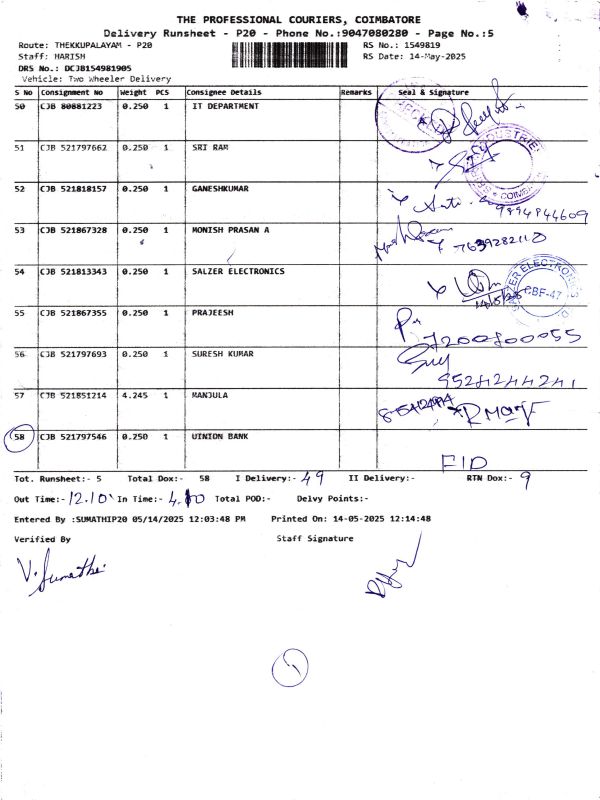 THE PROFESSIONAL COURIERS, COIMBATORE
Delivery Runsheet - P20 - Phone No.:9047080280 - Page No.:5
Route: THEKKUPALAYAM - P20 RS No.: 1549819
Staff: HARISH RS Date: 14-May-2025
DRS No.: DCJB154981905
Vehicle: Two Wheeler Delivery
S No Consignment No Weight PCS Consignee Details Remarks Seal & Signature
50 CJB 80881223 0.250 1 IT DEPARTMENT
51 CJB 521797662 0.250 1 SRI RAM
52 CJB 521818157 0.250 1 GANESHKUMAR 9894844609
53 CJB 521867328 0.250 1 MONISH PRASAN A 7639282110
54 CJB 521813343 0.250 1 SALZER ELECTRONICS 14/5/25 SALZER ELECTRONICS CBF-47
55 CJB 521867355 0.250 1 PRAJEESH 7200800055
56 CJB 521797693 0.250 1 SURESH KUMAR 9524244241
57 CJB 521851214 4.245 1 MANJULA
58 CJB 521797546 0.250 1 UINION BANK
Tot. Runsheet:- 5 Total Dox:- 58 I Delivery:- 49 II Delivery:- RTN Dox:- 9
Out Time:- 12.10 In Time:- Total POD:- Delvy Points:-
Entered By :SUMATHIP20 05/14/2025 12:03:48 PM Printed On: 14-05-2025 12:14:48
Verified By Staff Signature
V. Sumathi
1